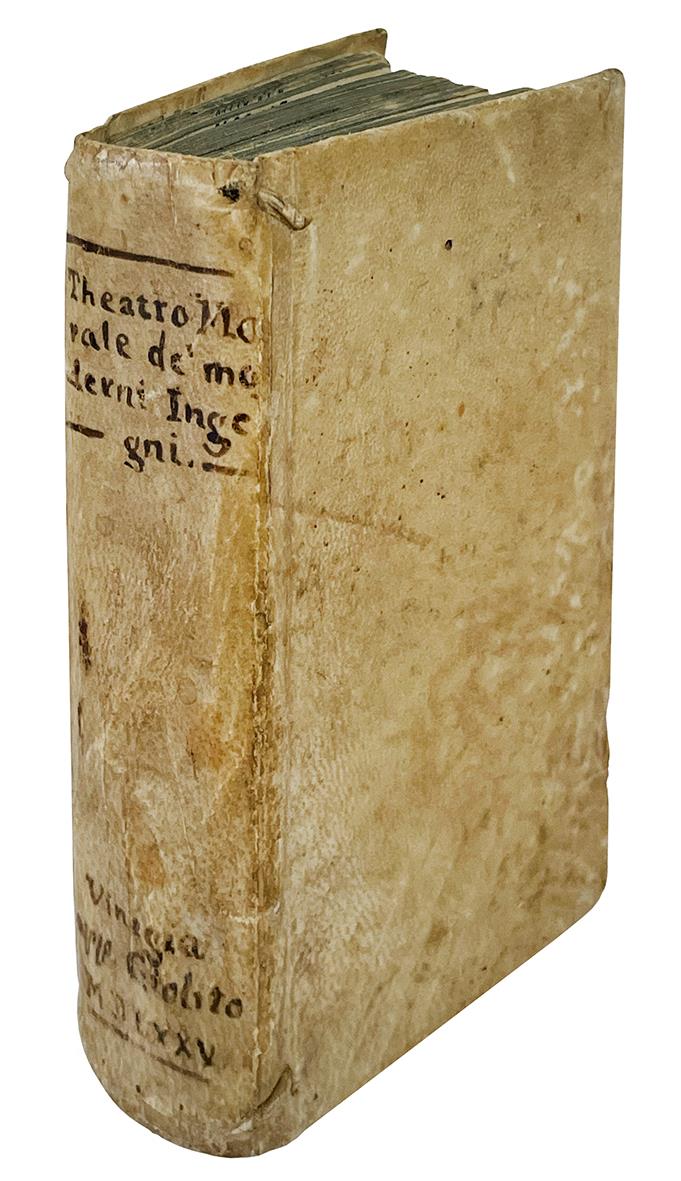 Theatro Mo
rale de' mo
derni Inge
gni.
Vinegia
app. Giolito
MDLXXV